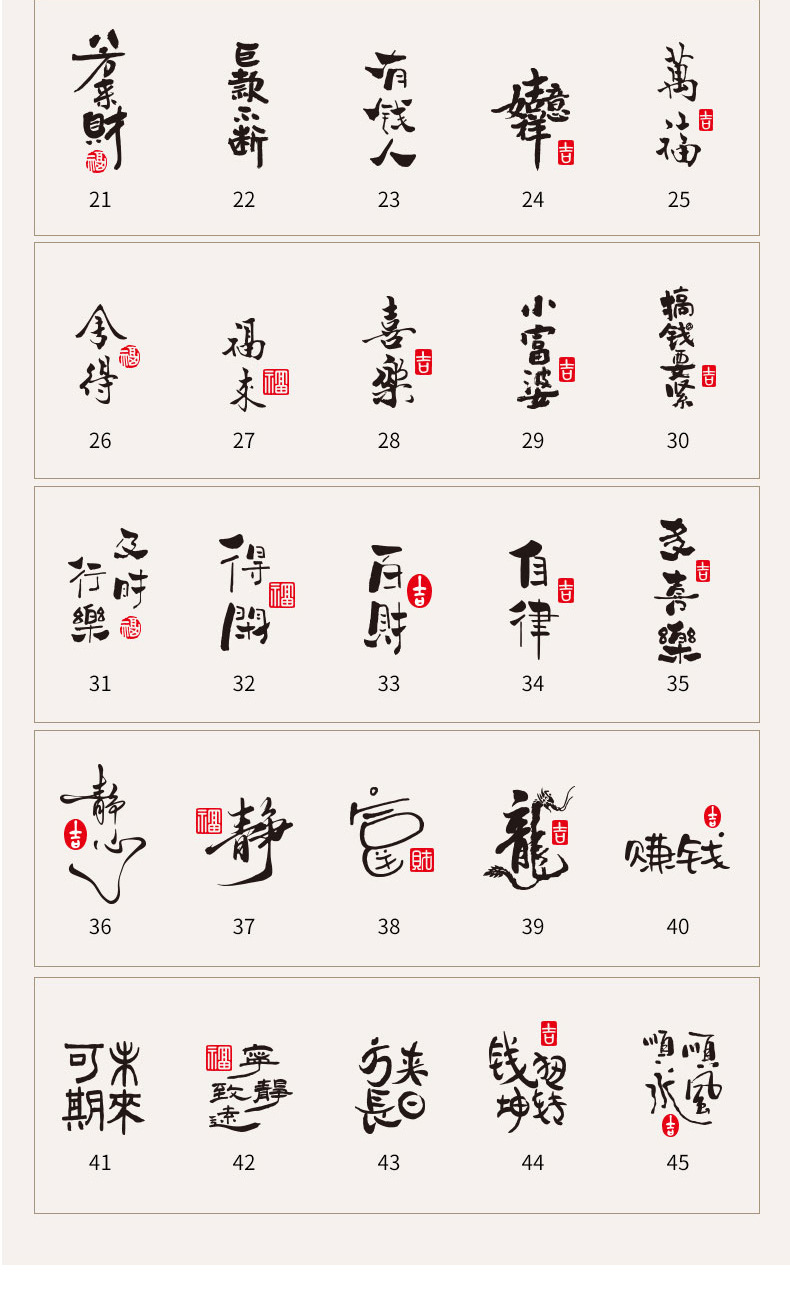 八方来財
福
21
巨款不断
22
有钱人
23
吉祥如意
吉
24
萬小福
吉
25
舍得
福
26
福来
福
27
喜樂
吉
28
小富婆
吉
29
搞钱要紧
吉
30
及時
行樂
福
31
得閑
福
32
百財
吉
33
自律
吉
34
多喜樂
吉
35
静心
吉
36
福
静
37
富
財
38
龍
吉
39
赚钱
吉
40
未來
可期
41
福
寧静
致远
42
来日
方長
43
吉
扭转
钱坤
44
順風
順水
吉
45